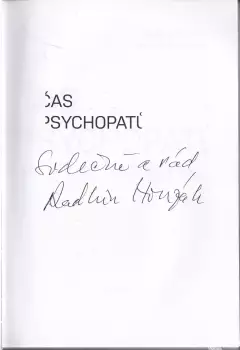 ČAS
PSYCHOPATŮ
Srdečně a rád
Radkin Honzák